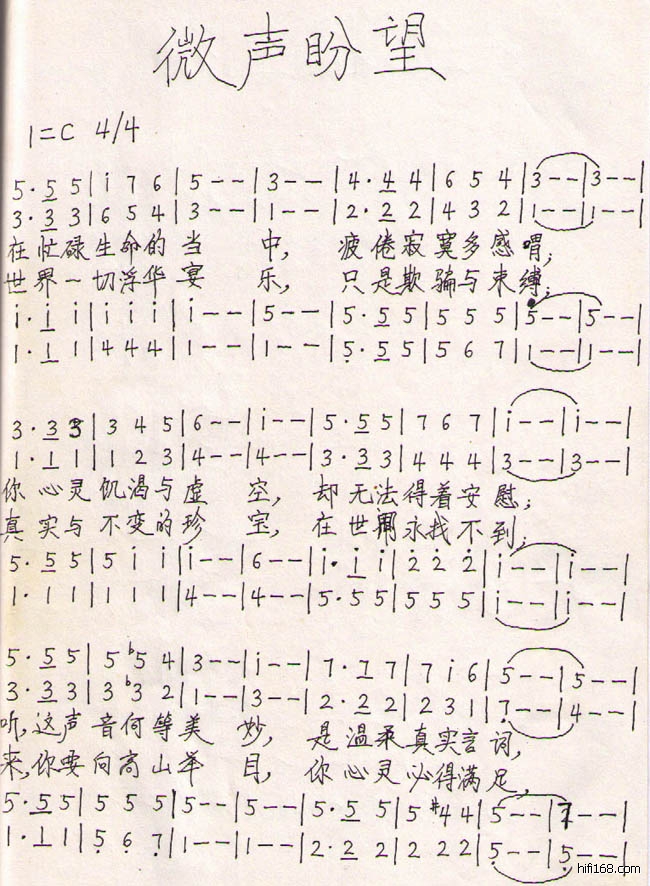 微声盼望
1=C 4/4
5·5 5|i 7 6|5--|3--|4·4 4|6 5 4|3--|3--|
3·3 3|6 5 4|3--|1--|2·2 2|4 3 2|1--|1--|
在忙碌生命的当 中, 疲倦寂寞多感喟;
世界一切浮华宴 乐, 只是欺骗与束缚;
i·i i|i i i|i--|5--|5·5 5|5 5 5|5--|5--|
1·1 1|4 4 4|1--|1--|5·5 5|5 6 7|1--|1--|
3·3 3|3 4 5|6--|i--|5·5 5|7 6 7|i--|i--|
1·1 1|1 2 3|4--|4--|3·3 3|4 4 4|3--|3--|
你心灵饥渴与虚 空, 却无法得着安慰;
真实与不变的珍 宝, 在世界永找不到;
5·5 5|5 i i|i--|6--|i·i i|2 2 2|i--|i--|
1·1 1|1 1 1|4--|4--|5·5 5|5 5 5|i--|i--|
5·5 5|5 b5 4|3--|i--|7·7 7|7 i 6|5--|5--|
3·3 3|3 b3 2|1--|3--|2·2 2|2 3 1|7--|4--|
听,这声音何等美 妙, 是温柔真实言词,
来,你要向高山举 目, 你心灵必得满足,
5·5 5|5 5 5|5--|5--|5·5 5|5 #4 4|5--|7--|
1·1 1|5 6 7|1--|1--|2·2 2|2 2 2|5--|5--|
hifi168.com